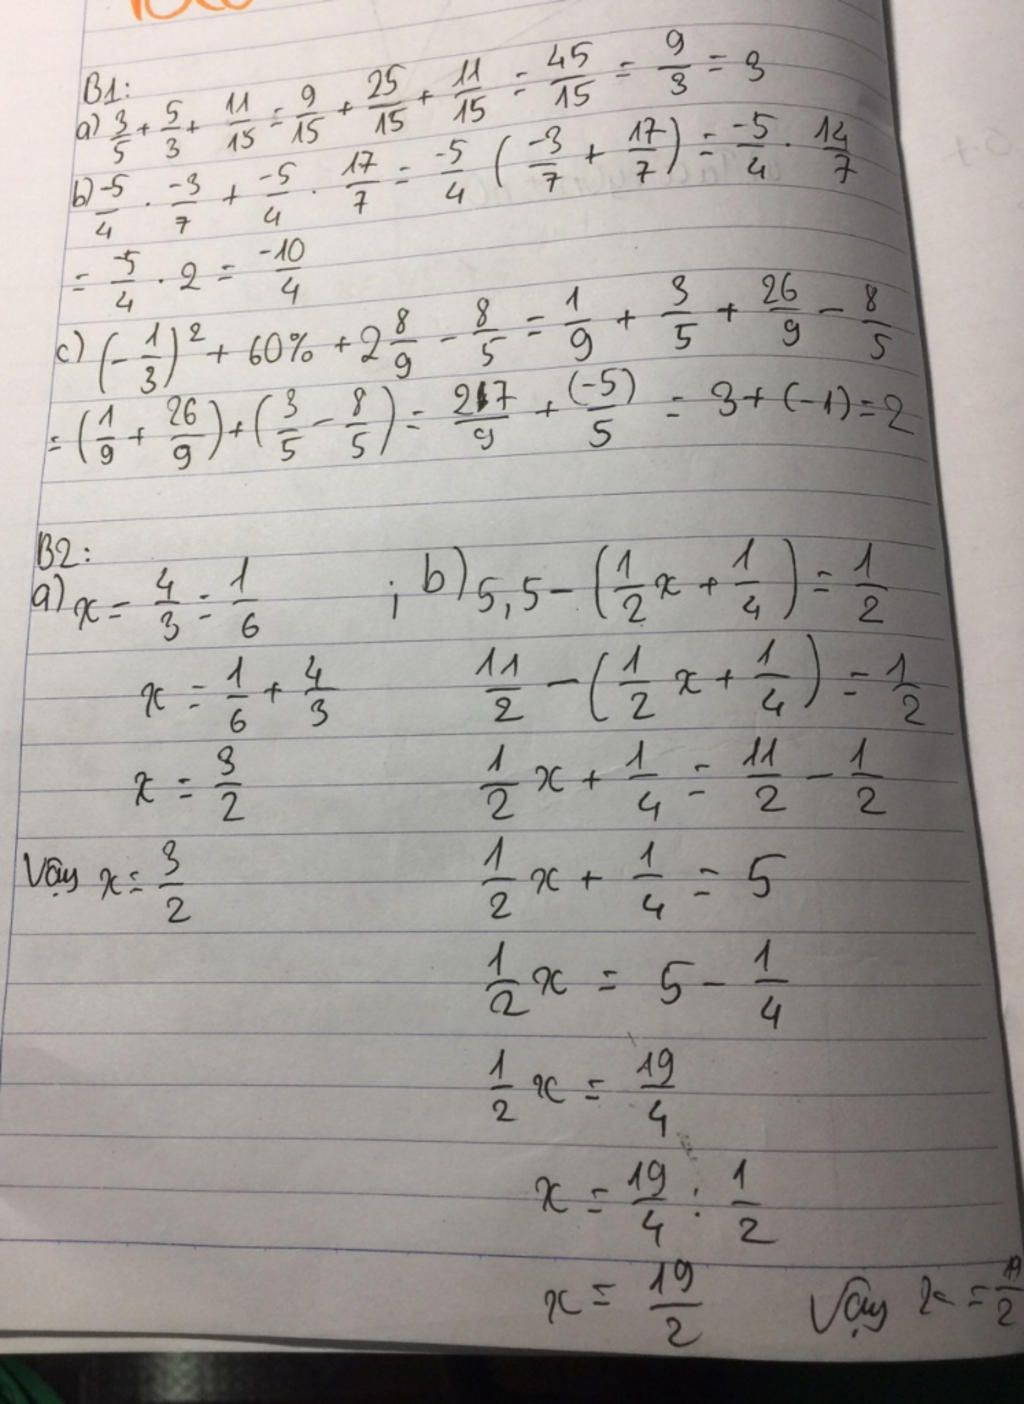 B1:
a) 3/5 + 5/3 + 11/15 = 9/15 + 25/15 + 11/15 = 45/15 = 9/3 = 3
b) -5/4 . -3/7 + -5/4 . 17/7 = -5/4 ( -3/7 + 17/7 ) = -5/4 . 14/7
= -5/4 . 2 = -10/4
c) (- 1/3)² + 60% + 2 8/9 - 8/5 = 1/9 + 3/5 + 26/9 - 8/5
= (1/9 + 26/9) + (3/5 - 8/5) = 27/9 + (-5)/5 = 3 + (-1) = 2
B2:
a) x = 4/3 = 1/6
x = 1/6 + 4/3
x = 3/2
Vậy x = 3/2
; b) 5,5 - (1/2 x + 1/4) = 1/2
11/2 - (1/2 x + 1/4) = 1/2
1/2 x + 1/4 = 11/2 - 1/2
1/2 x + 1/4 = 5
1/2 x = 5 - 1/4
1/2 x = 19/4
x = 19/4 : 1/2
x = 19/2 Vậy x = 19/2